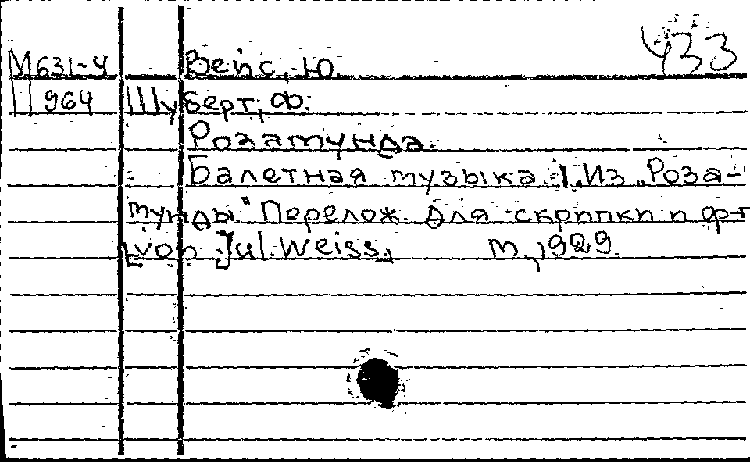 433
М631-4 Вейс, Ю.
П964 Шуберт, Ф.
Розамунда.
Балетная музыка. 1. Из „Роза-
мунды" Перелож для скрипки и ф-п
von Jul. Weiss. М., 1929.